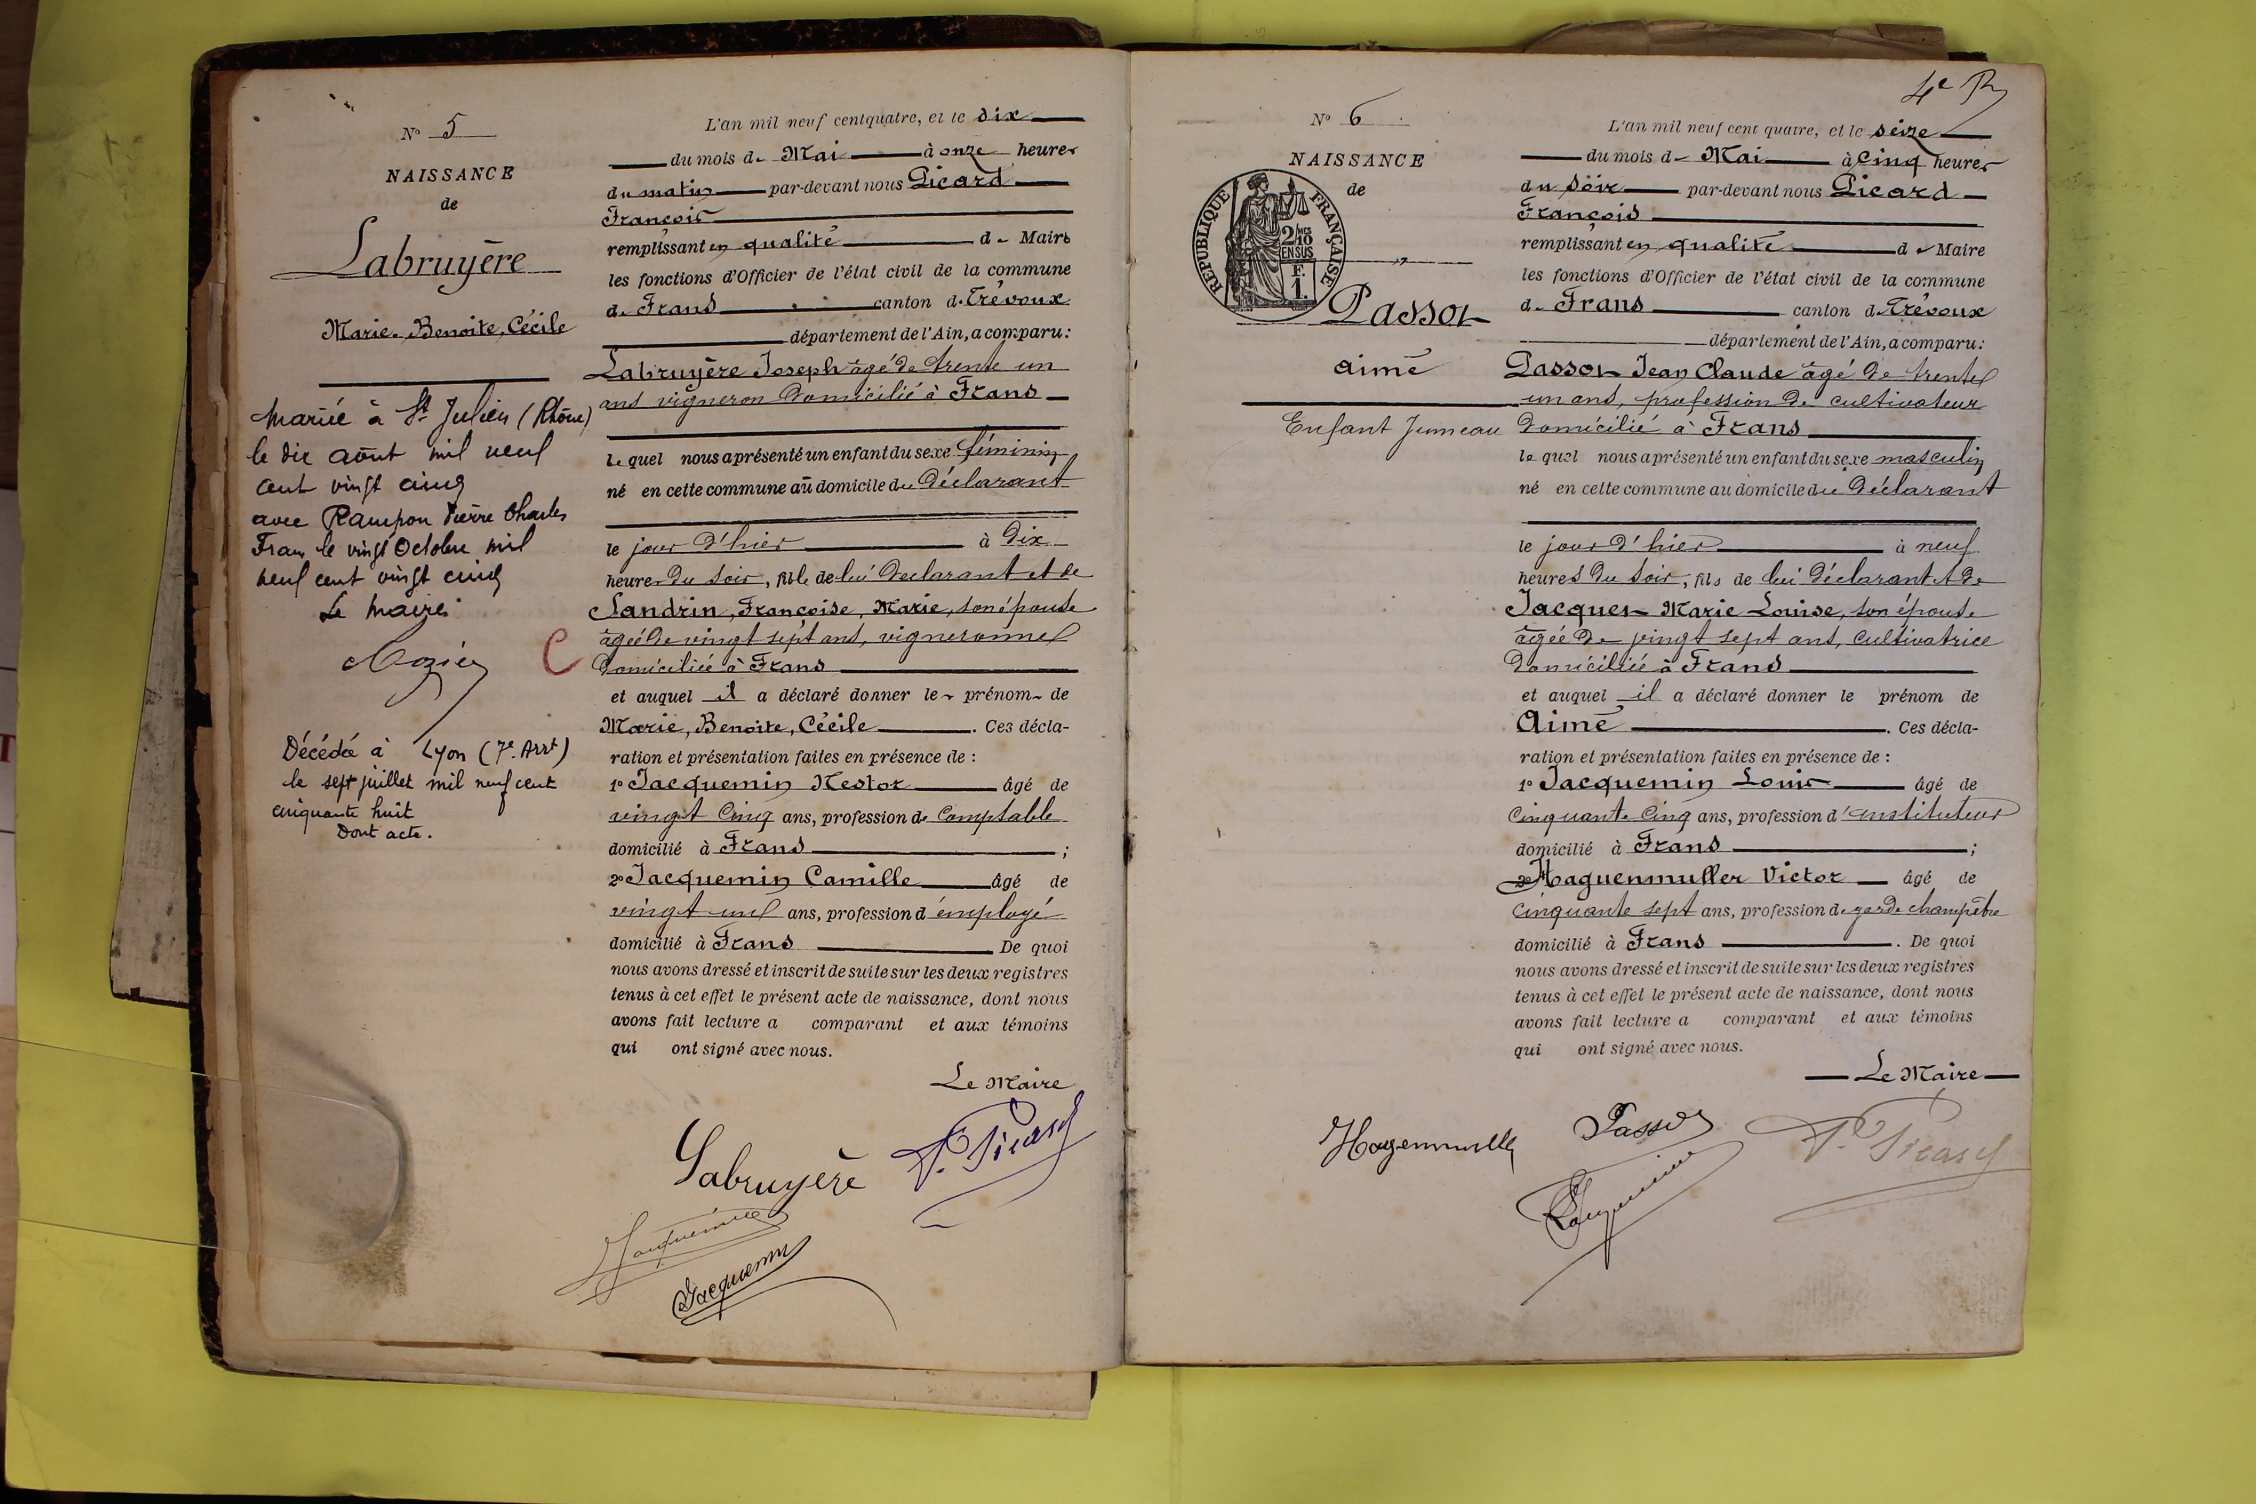 N° 5
NAISSANCE
de
Labruyère
Marie, Benoite, Cécile
Mariée à St Julien (Rhône)
le dix août mil neuf
cent vingt cinq
avec Rampon Pierre Charles
Frans le vingt Octobre mil
neuf cent vingt cinq
Le Maire
Décédée à Lyon (7e Arrt)
le sept juillet mil neuf cent
cinquante huit
Dont acte.
L'an mil neuf cent quatre, et le dix
du mois de Mai à onze heures
du matin par-devant nous Picard
François
remplissant en qualité de Maire
les fonctions d'Officier de l'état civil de la commune
de Frans canton de Trévoux
département de l'Ain, a comparu :
Labruyère Joseph âgé de trente un
ans vigneron domicilié à Frans
lequel nous a présenté un enfant du sexe féminin
né en cette commune au domicile du Déclarant
le jour d'hier à dix
heures du soir, fille de lui déclarant et de
Sandrin, Françoise, Marie, son épouse
âgée de vingt sept ans, vigneronne
domiciliée à Frans
et auquel il a déclaré donner les prénoms de
Marie, Benoite, Cécile. Ces décla-
ration et présentation faites en présence de :
1° Jacquemin Nestor âgé de
vingt cinq ans, profession de comptable
domicilié à Frans ;
2° Jacquemin Camille âgé de
vingt un ans, profession d'employé
domicilié à Frans De quoi
nous avons dressé et inscrit de suite sur les deux registres
tenus à cet effet le présent acte de naissance, dont nous
avons fait lecture a comparant et aux témoins
qui ont signé avec nous.
Le Maire
Labruyère F. Picard
Jacquemin
Jacquemin
4e
N° 6
NAISSANCE
de
RÉPUBLIQUE FRANÇAISE
2/10 EN SUS
F. 1.
Passot
Aimé
Enfant Jumeau
L'an mil neuf cent quatre, et le seize
du mois de Mai à cinq heures
du soir par-devant nous Picard
François
remplissant en qualité de Maire
les fonctions d'Officier de l'état civil de la commune
de Frans canton de Trévoux
département de l'Ain, a comparu :
Passot Jean Claude âgé de trente
un ans, profession de cultivateur
domicilié à Frans
lequel nous a présenté un enfant du sexe masculin
né en cette commune au domicile du Déclarant
le jour d'hier à neuf
heures du soir, fils de lui Déclarant et de
Jacquet Marie Louise, son épouse
âgée de vingt sept ans, cultivatrice
domiciliée à Frans
et auquel il a déclaré donner le prénom de
Aimé. Ces décla-
ration et présentation faites en présence de :
1° Jacquemin Louis âgé de
cinquante cinq ans, profession d'instituteur
domicilié à Frans ;
2° Haguenmuller Victor âgé de
cinquante sept ans, profession de garde champêtre
domicilié à Frans. De quoi
nous avons dressé et inscrit de suite sur les deux registres
tenus à cet effet le présent acte de naissance, dont nous
avons fait lecture a comparant et aux témoins
qui ont signé avec nous.
Le Maire
Passot
F. Picard
Jacquemin